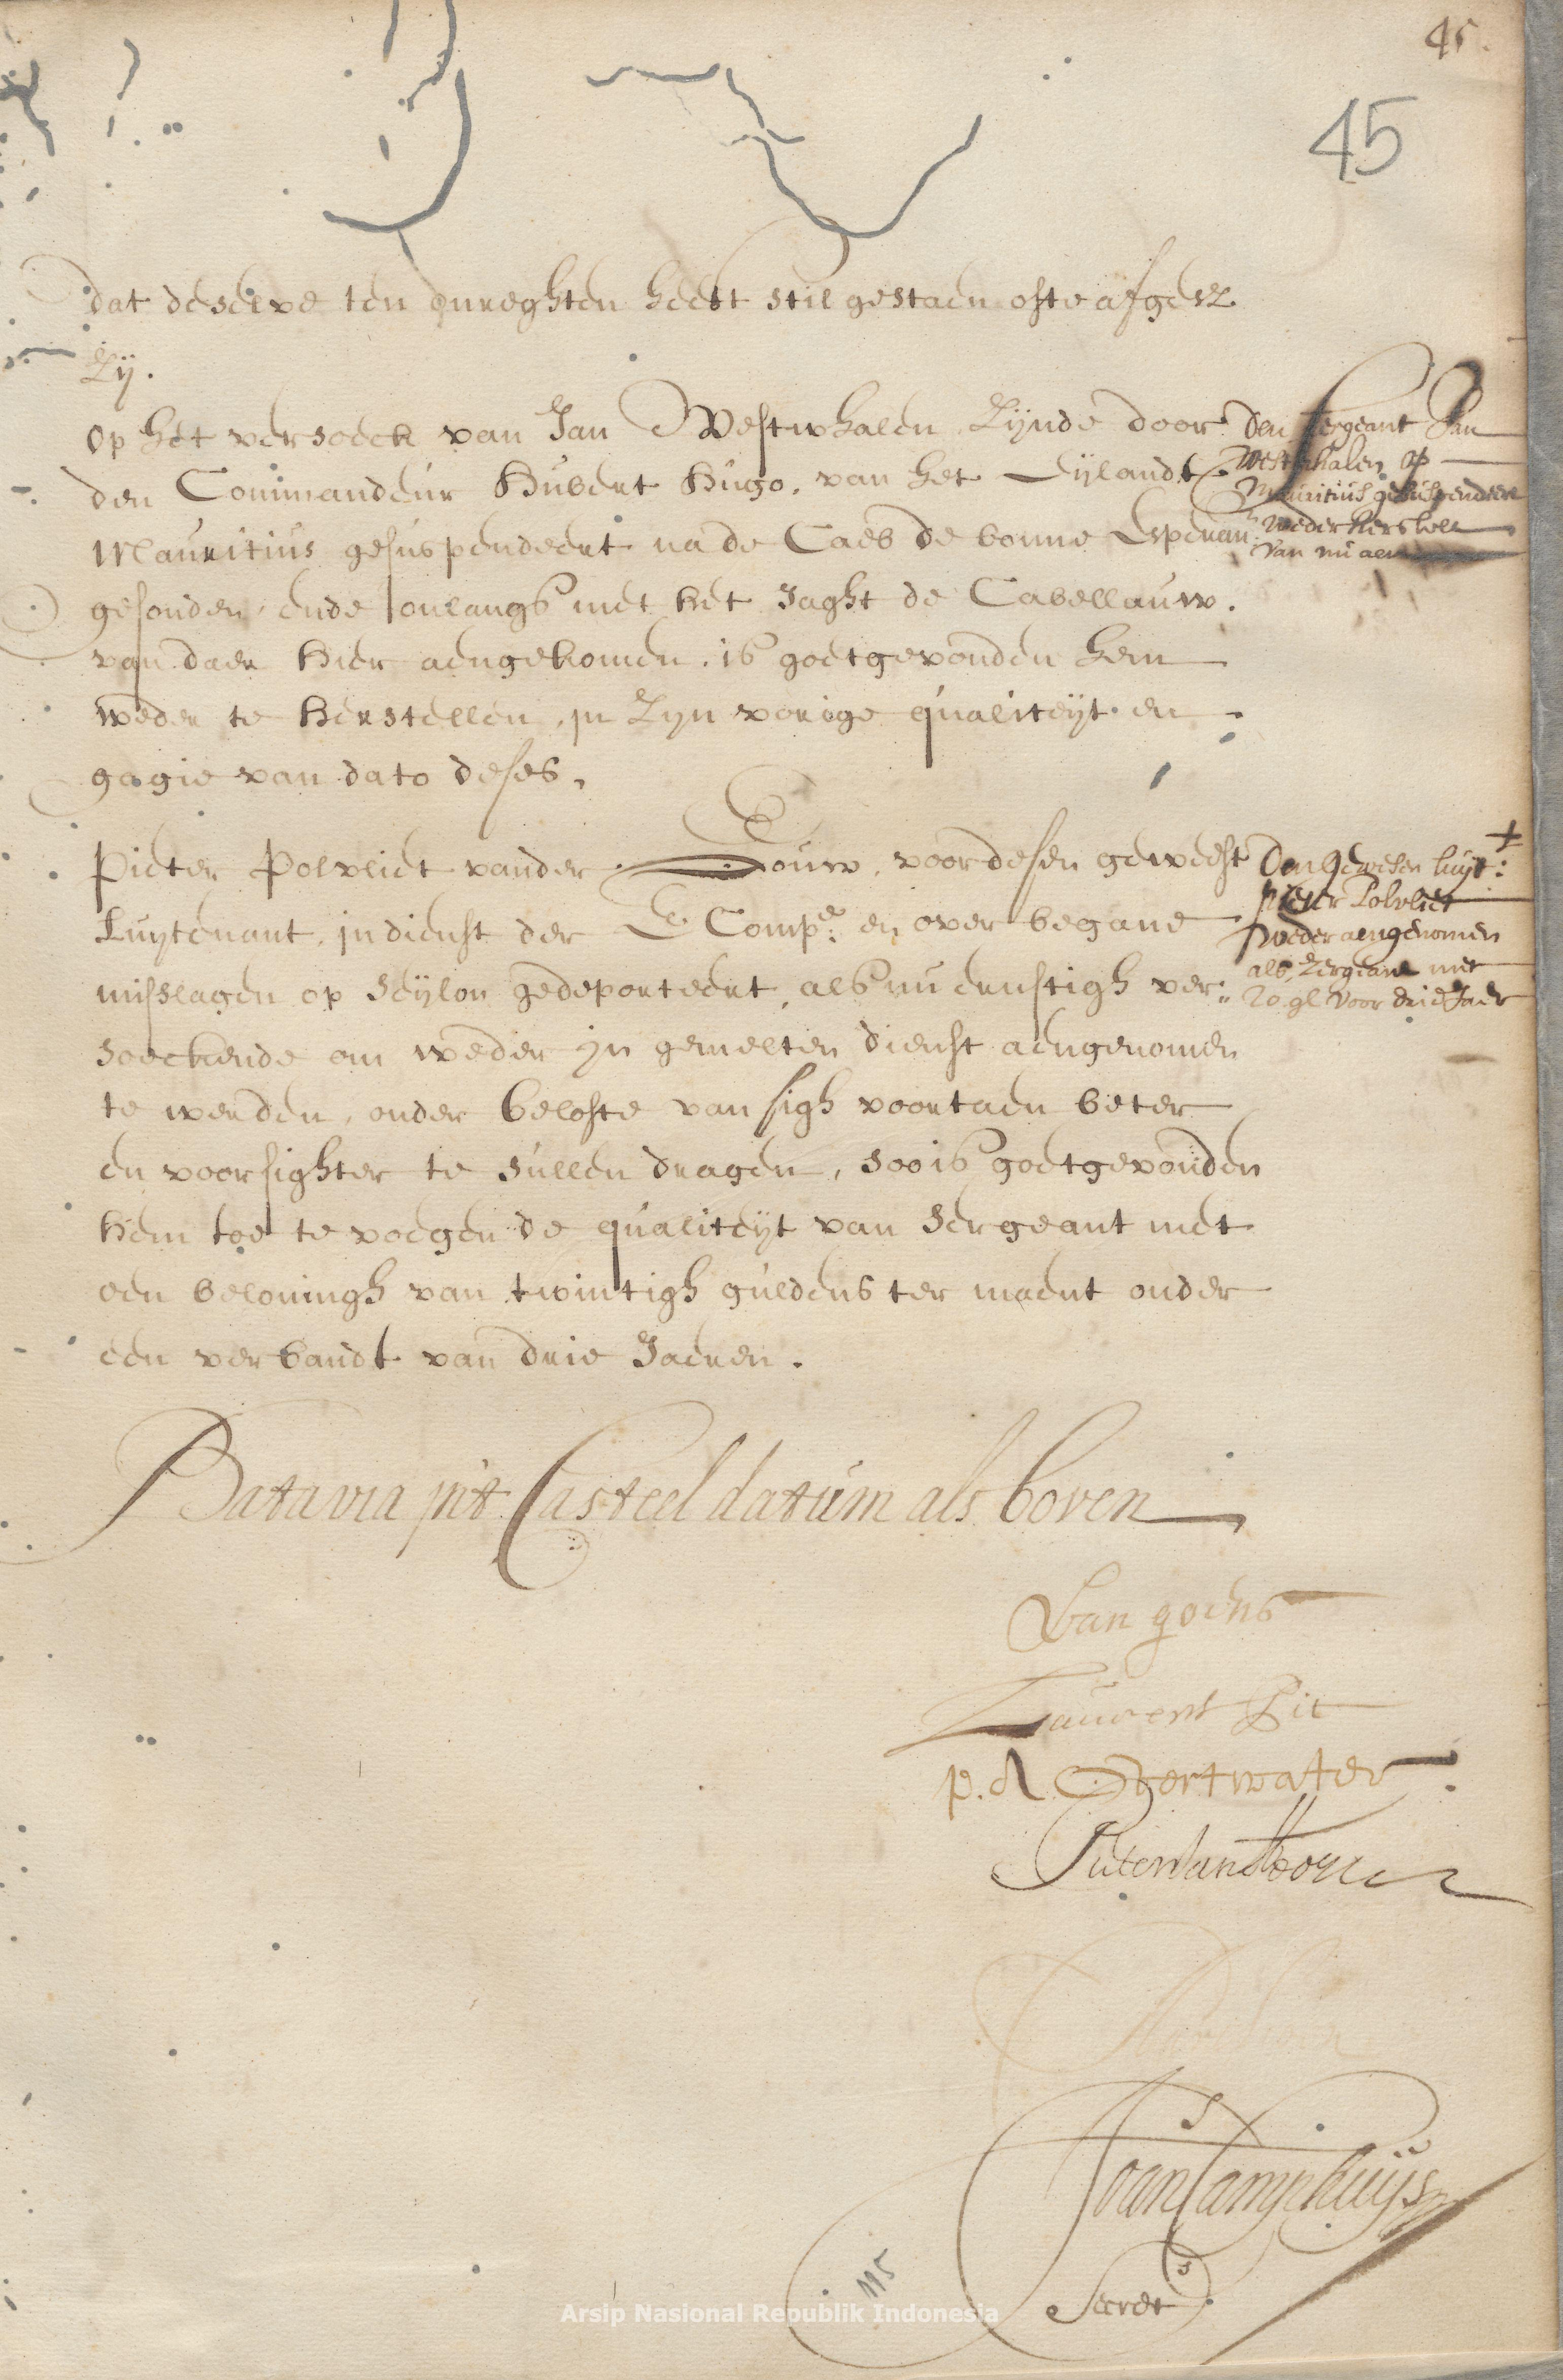 45.
45
dat deselve ten onreghten heeft stil gestaen ofte afgesz
Zy.
op het versoeck van Jan Westwhalen Zijnde door
den Commandeur Hubert Hugo, van het Eijlandt
Mauritius gesuspendeert na de Caeb de bonne Esperan:
gesonden, ende onlangs met het Jaght de Cabellauw.
van daer hier aengekomen, is goetgevonden hem
weder te herstellen, in Zyn vorige qualiteyt en
gagie van dato deses,
Den sergeant Jan
Westphalen op
Mauritius gesuspendeert
weder herstelt
van nu aen
Pieter Polvliet vander Douw, voordesen geweest
Luytenant, in dienst der E Compe: en over begane
misslagen op Seylon gedeporteert, als nu ernstigh ver:
soeckende om weder in gemelten dienst aengenomen
te werden, onder belofte van sigh voortaen beter
en voorsighter te sullen dragen, soo is goetgevonden
hem toe te voegen de qualiteyt van Sergeant met
een beloningh van twintigh guldens ter maent onder
een verbandt van drie Jaeren.
+
Den gewesen luyt:
Pieter Polvliet
weder aengenomen
als Zergeant met
20. gl voor drie Jaer
Batavia int Casteel datum als boven
Van goens
Laurens Pit
p. A. Overtwater
Pieter van Hoorn
Joan Camphuys
Secrets
115
Arsip Nasional Republik Indonesia